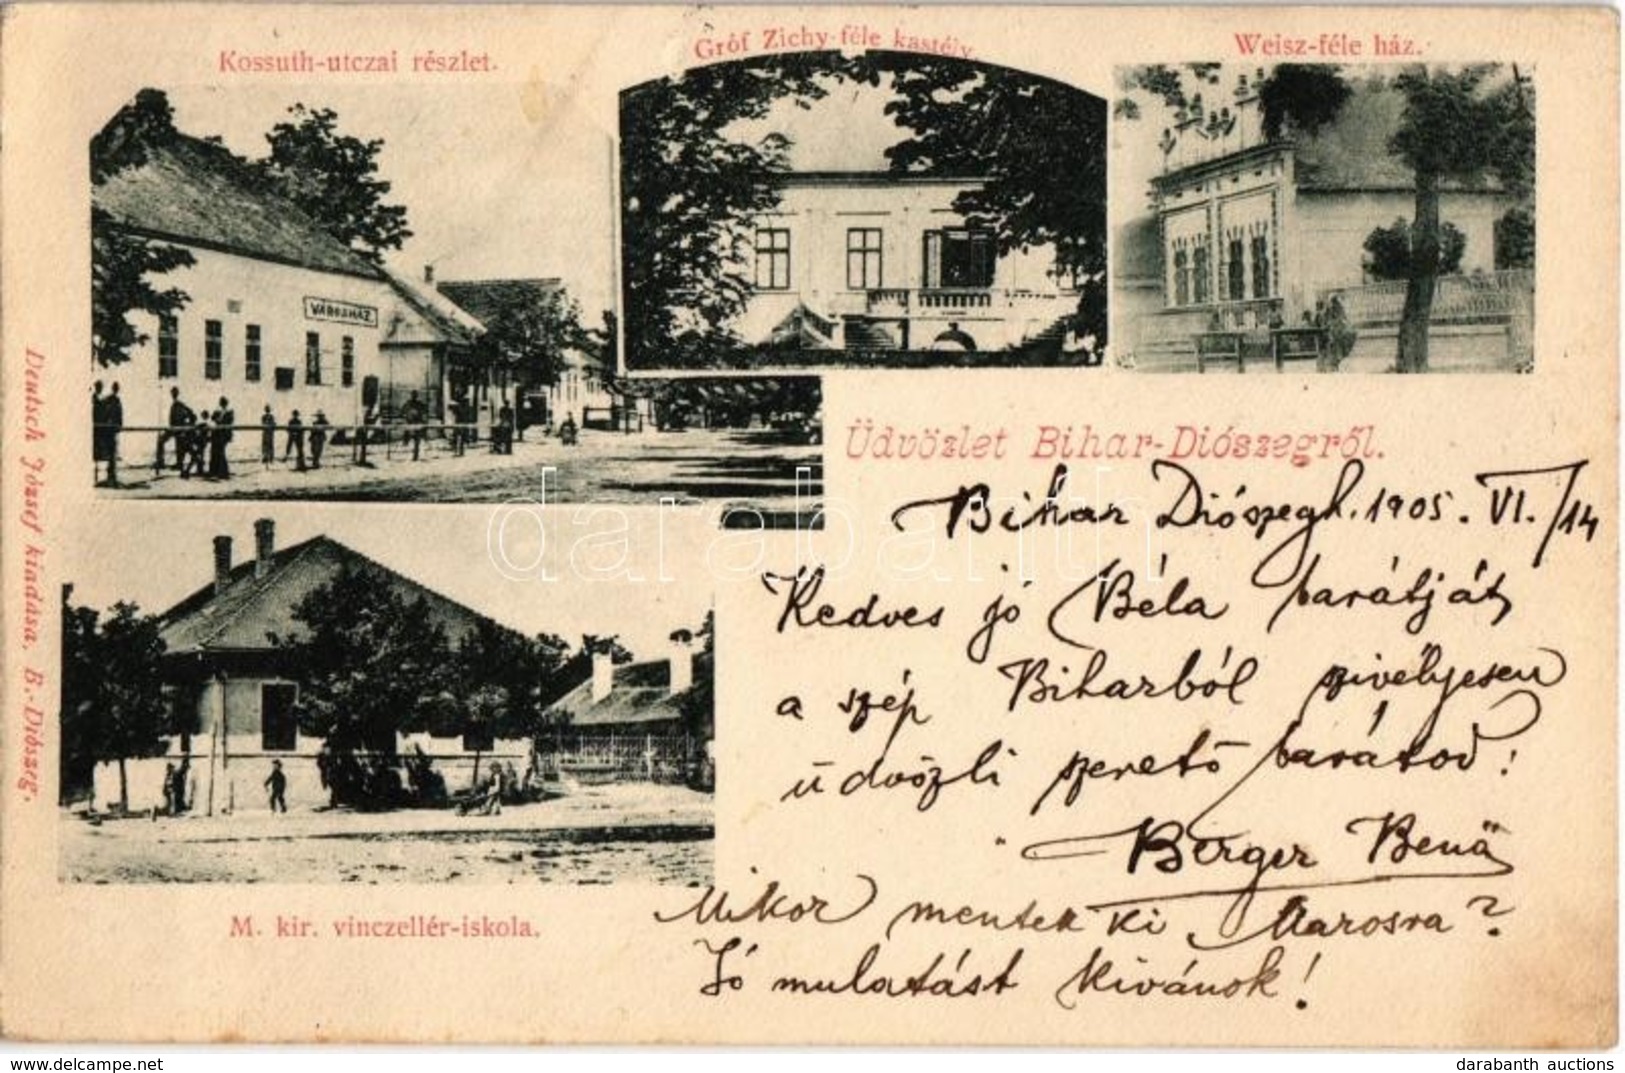 Kossuth-utczai részlet.
Gróf Zichy-féle kastély
Weisz-féle ház.
VÁROSHÁZ
Üdvözlet Bihar-Diószegről.
Bihar Diószegh. 1905. VI./14
Kedves jó Béla barátját
a szép Biharból szivélyesen
üdvözli szerető barátod:
Berger Benő
Mikor mentek ki Marosra?
Jó mulatást kivánok!
M. kir. vinczellér-iskola.
Deutsch József kiadása, B.-Diószeg.
darabanth
darabanth auctions